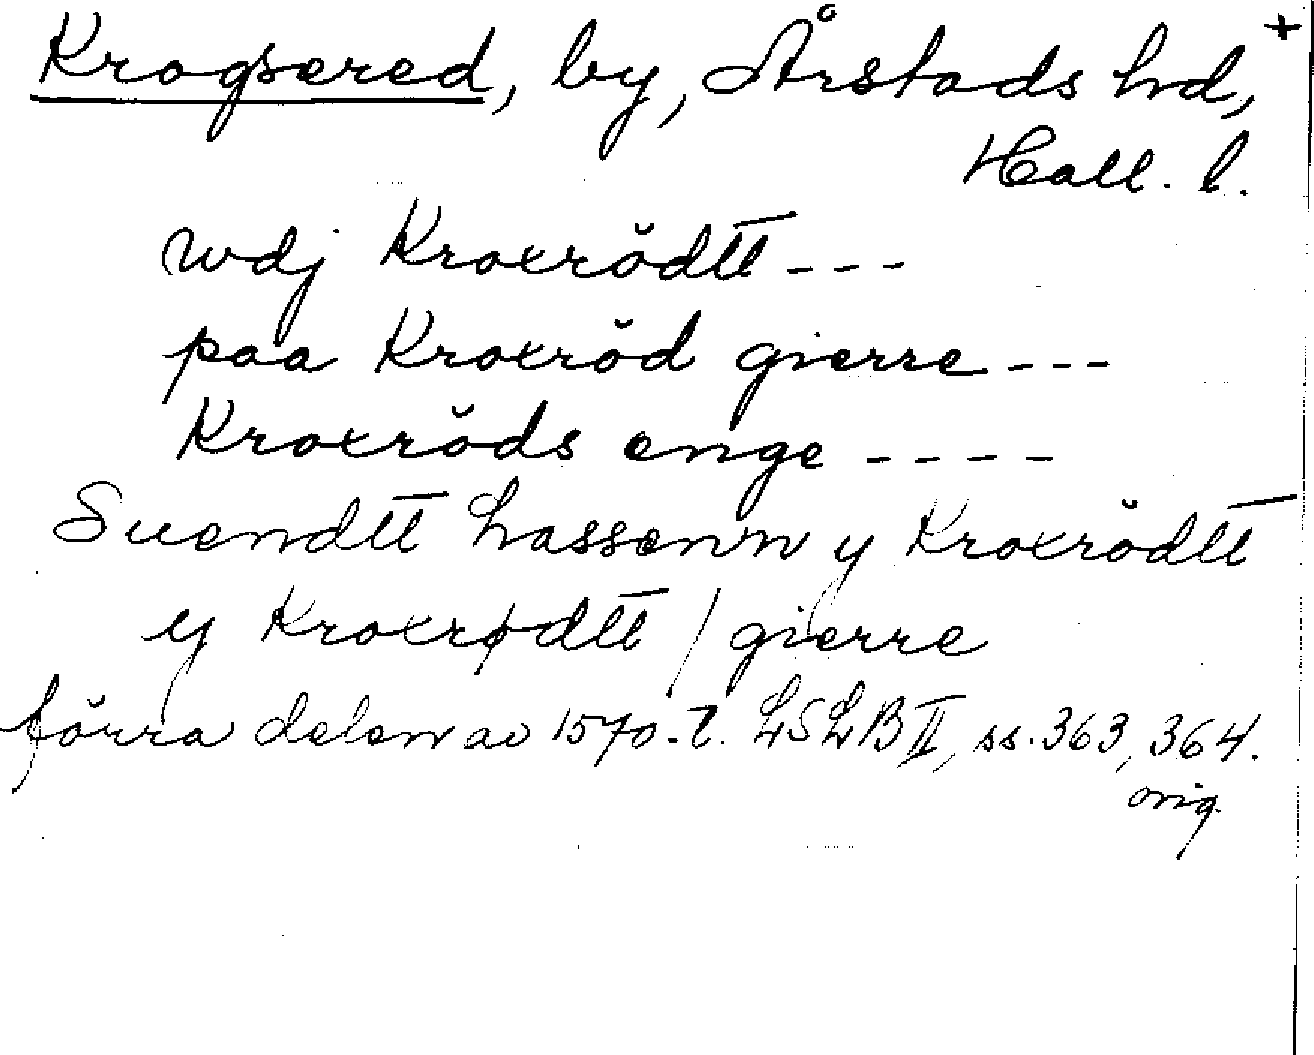 Krogsered, by, Årstads hd, +
Hall. l.
wdj Kroxrŏdtt ---
paa Kroxrŏd gierre ---
Kroxrŏds enge ----
Suendtt Lassenn y Kroxrŏdtt
y Kroxrødtt / gierre
förra delen av 1570-t. LSLB II, ss. 363, 364.
orig.